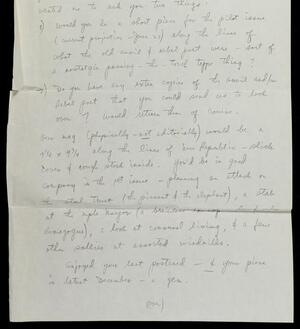 wanted me to ask you two things.
1) Would you be a short piece for the pilot issue
(current projection - June 20) along the lines of
what the old anvil & rebel poet were - sort of
a nostalgia passing - the - torch type thing?
2) Do you have any extra copies of the anvil and/or
Rebel poet that you could send us to look
over? I would return them of course.
Our mag (physically - not editorially) would be a
along the lines of New Republic - slick
cover & rough stock inside. You'd be in good
company in the 1st issue - planning an attack on
the steel trust (the peasant & the elephant), a stab
at the Mayor (a
demagogue), a look at communal living, & a few
other sallies at assorted windmills.
Enjoyed your last postcard - & your piece
in latest December - a gem.
(over)